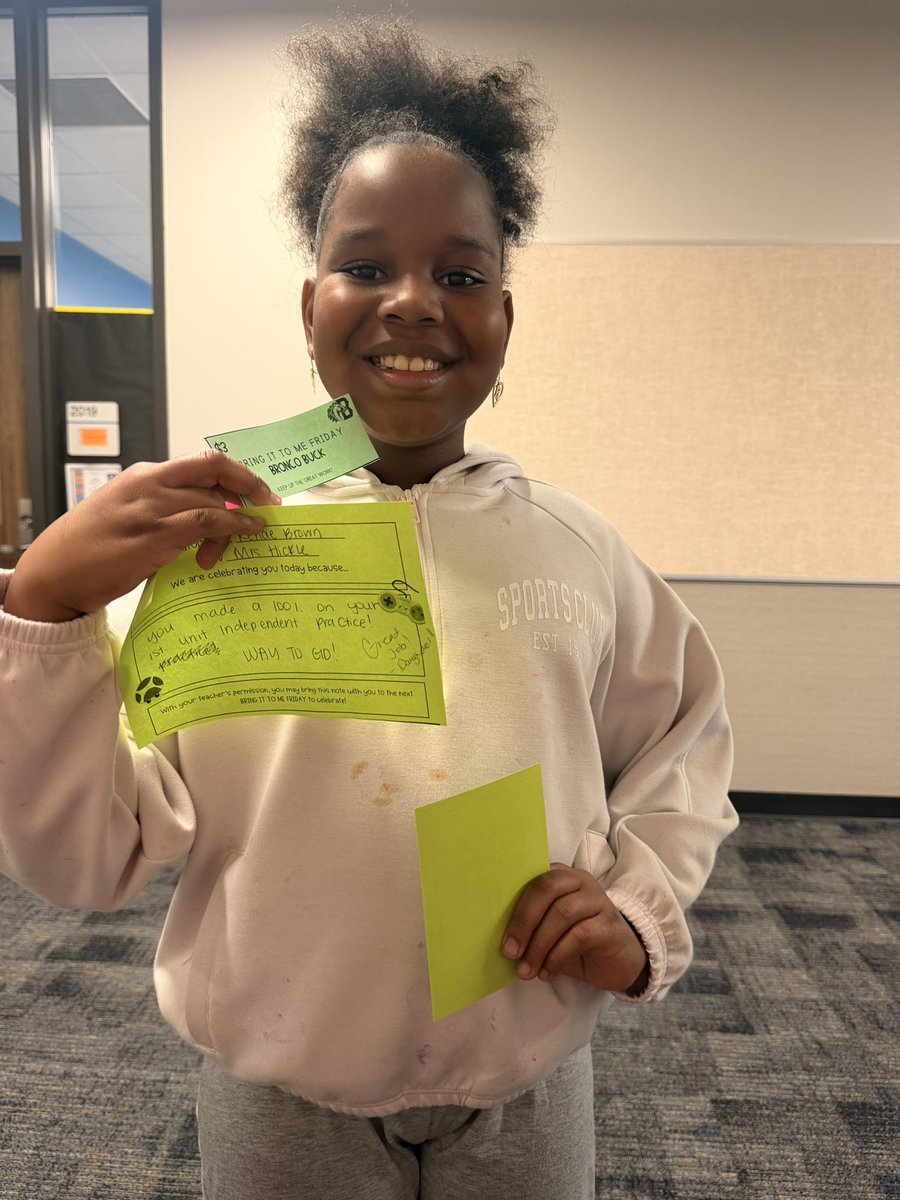 2019
$3
BRING IT TO ME FRIDAY
BRONCO BUCK
KEEP UP THE GREAT WORK!
B
Brown
Mrs Hickle
We are celebrating you today because...
you made a 100% on your
1st unit independent practice!
practice
WAY TO GO!
Great
Job
With your teacher's permission, you may bring this note with you to the next
BRING IT TO ME FRIDAY to celebrate!
SPORTS CLU
EST. 19